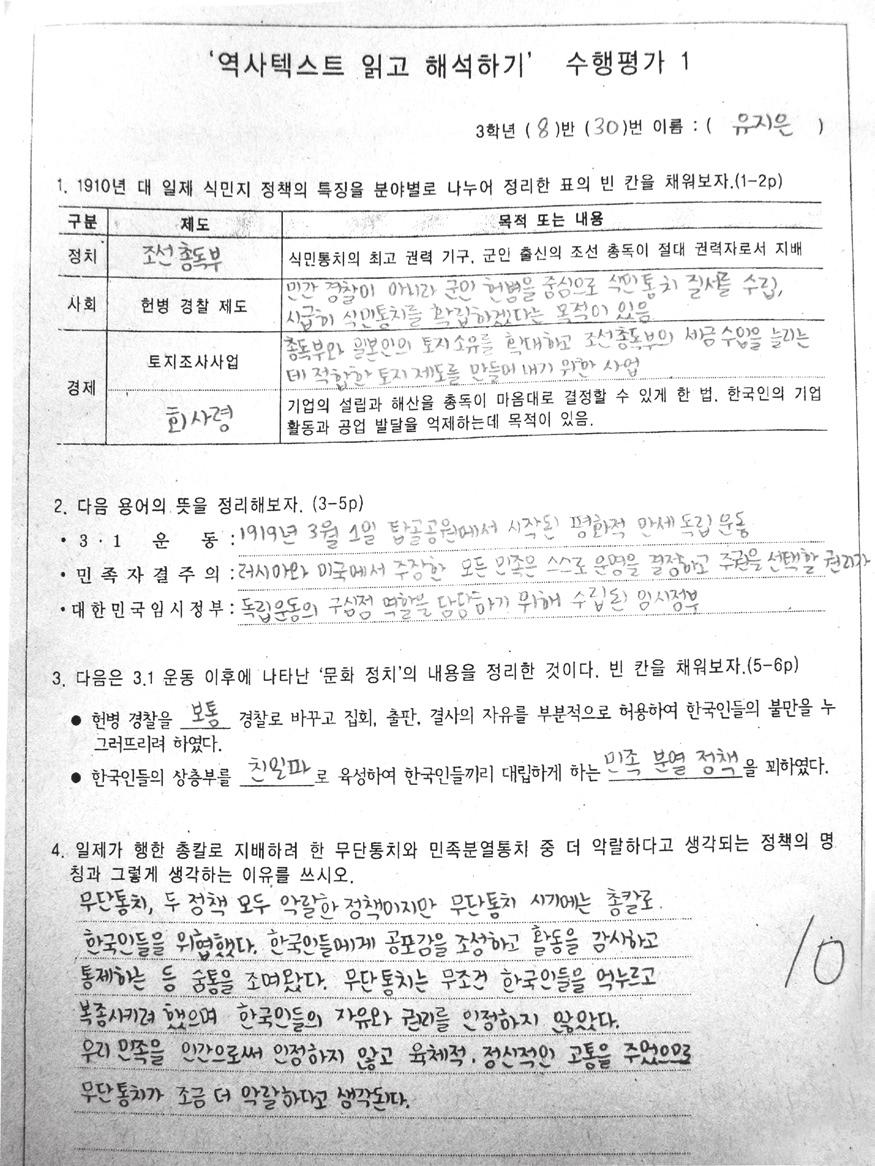 '역사텍스트 읽고 해석하기' 수행평가 1
3학년 (8)반 (30)번 이름 : ( 유지은 )
1. 1910년 대 일제 식민지 정책의 특징을 분야별로 나누어 정리한 표의 빈 칸을 채워보자.(1-2p)
구분 제도 목적 또는 내용
정치 조선총독부 식민통치의 최고 권력 기구, 군인 출신의 조선 총독이 절대 권력자로서 지배
사회 헌병 경찰 제도 민간 경찰이 아니라 군인 헌병을 중심으로 식민통치 질서를 수립,
시급히 식민통치를 확립하겠다는 목적이 있음
경제 토지조사사업 총독부와 일본인의 토지소유를 확대하고 조선총독부의 세금 수입을 늘리는
데 적합한 토지 제도를 만들어 내기 위한 사업
회사령 기업의 설립과 해산을 총독이 마음대로 결정할 수 있게 한 법. 한국인의 기업
활동과 공업 발달을 억제하는데 목적이 있음.
2. 다음 용어의 뜻을 정리해보자. (3-5p)
• 3 · 1 운 동 : 1919년 3월 1일 탑골공원에서 시작된 평화적 만세 독립 운동
• 민 족 자 결 주 의 : 러시아와 미국에서 주장한 모든 민족은 스스로 운명을 결정하고 주권을 선택할 권리가
• 대한민국임시정부 : 독립운동의 구심점 역할을 담당하기 위해 수립된 임시정부
3. 다음은 3.1 운동 이후에 나타난 '문화 정치'의 내용을 정리한 것이다. 빈 칸을 채워보자.(5-6p)
● 헌병 경찰을 보통 경찰로 바꾸고 집회, 출판, 결사의 자유를 부분적으로 허용하여 한국인들의 불만을 누
그러뜨리려 하였다.
● 한국인들의 상층부를 친일파로 육성하여 한국인들끼리 대립하게 하는 민족 분열 정책을 꾀하였다.
4. 일제가 행한 총칼로 지배하려 한 무단통치와 민족분열통치 중 더 악랄하다고 생각되는 정책의 명
칭과 그렇게 생각하는 이유를 쓰시오.
무단통치, 두 정책 모두 악랄한 정책이지만 무단통치 시기에는 총칼로
한국인들을 위협했다. 한국인들에게 공포감을 조성하고 활동을 감시하고
통제하는 등 숨통을 조여왔다. 무단통치는 무조건 한국인들을 억누르고
복종시키려 했으며 한국인들의 자유와 권리를 인정하지 않았다.
우리 민족을 인간으로써 인정하지 않고 육체적, 정신적인 고통을 주었으므로
무단통치가 조금 더 악랄하다고 생각된다.
10